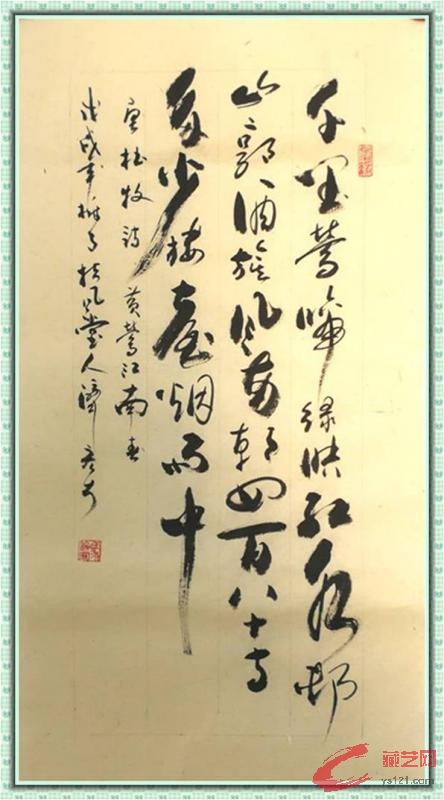 千里鶯啼绿映红水邨
山郭酒旗风南朝四百八十寺
多少楼臺烟雨中
唐杜牧诗 黄鶯江南春
戊戌年 于扶风堂人
藏艺网
ys121.com